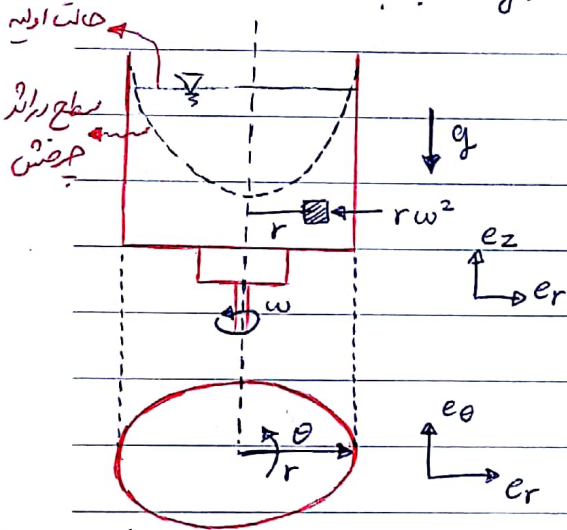 حالت اولیه
سطح در اثر
چرخش
g
r
rω²
e_z
e_r
ω
θ
r
e_θ
e_r